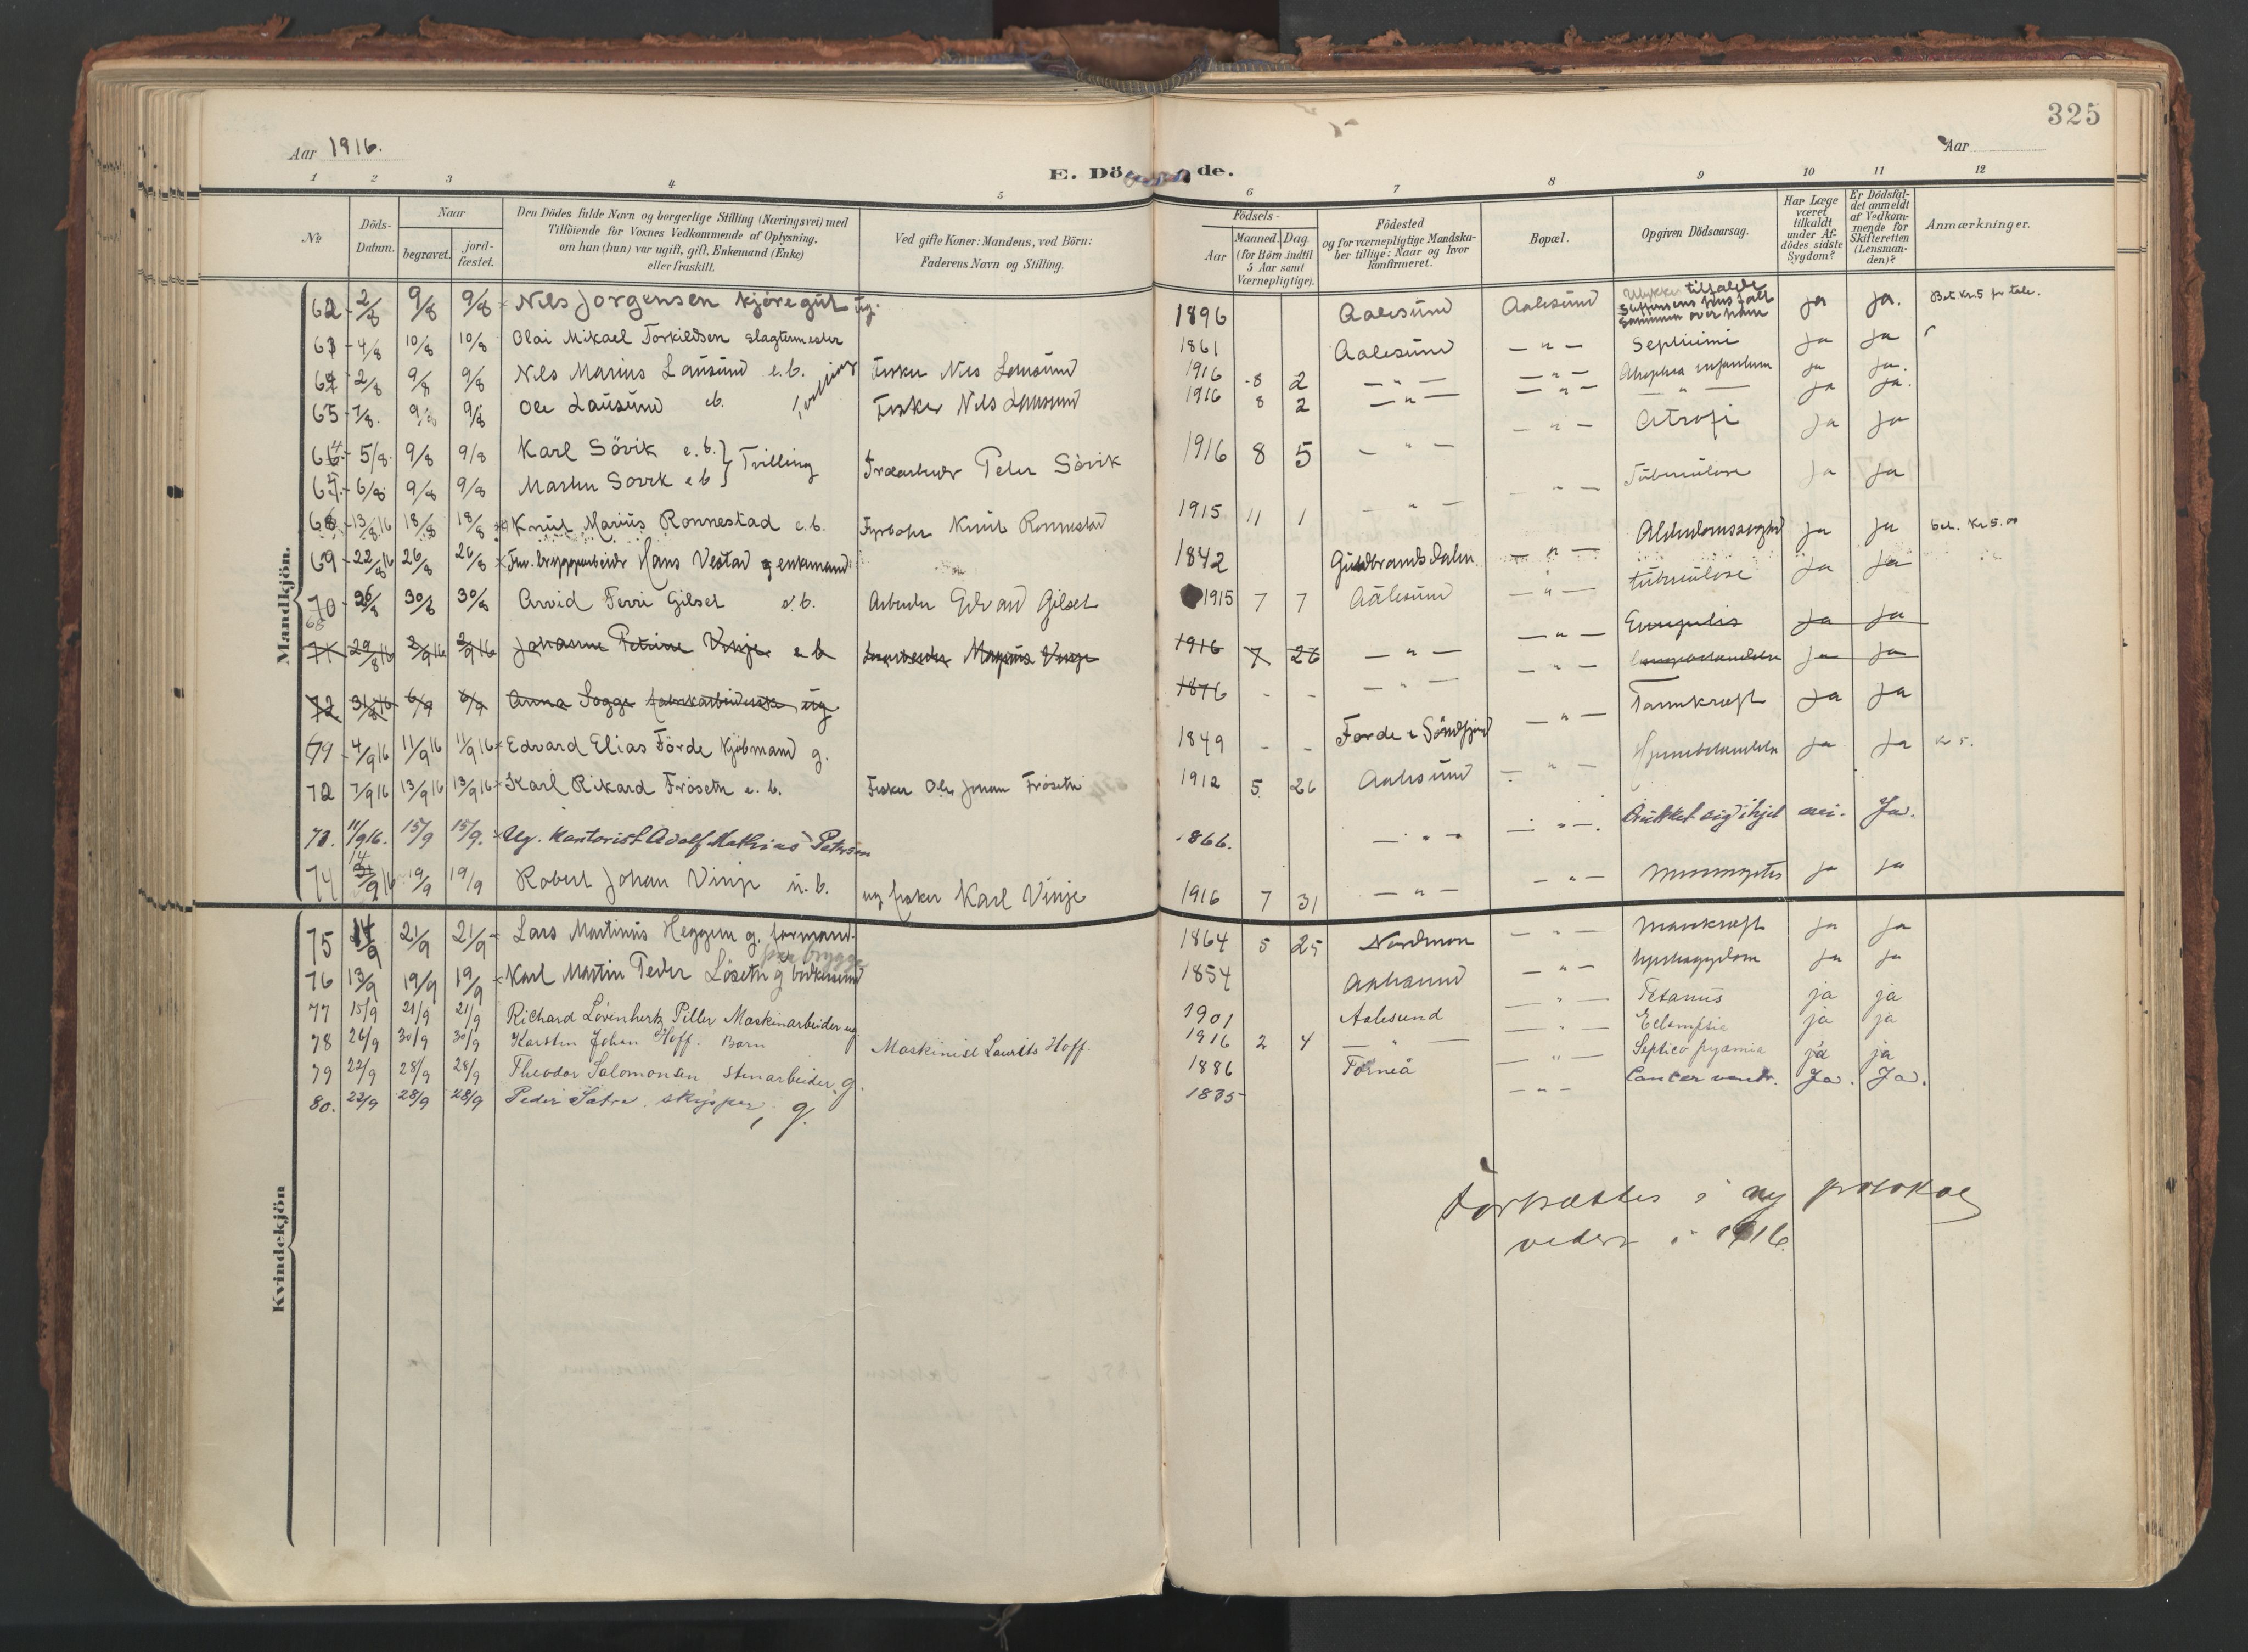 325
Aar 1916.
Aar
E. Dö de.
1 2 3 4 5 6 7 8 9 10 11 12
No
Döds-Datum.
Naar
begravet.
jord-fæstet.
Den Dödes fulde Navn og borgerlige Stilling (Næringsvei) med
Tilföiende for Voxnes Vedkommende af Oplysning,
om han (hun) var ugift, gift, Enkemand (Enke)
eller fraskilt.
Ved gifte Koner: Mandens, ved Börn:
Faderens Navn og Stilling.
Födsels-
Aar
Maaned. Dag.
(for Börn indtil
5 Aar samt
Værnepligtige).
Födested
og for værnepligtige Mandska-
ber tillige: Naar og hvor
Konfirmeret.
Bopæl.
Opgiven Dödsaarsag.
Har Læge
været
tilkaldt
under Af-
dödes sidste
Sygdom?
Er Dödsfal-
det anmeldt
af Vedkom-
mende for
Skifteretten
(Lensman-
den)?
Anmærkninger.
Mandkjön.
62 2/8 9/8 9/8 Nils Jorgensen kjöregut ug. 1896 Aalesund Aalesund ja ja. Bet Kr. 5 for tale.
63 4/8 10/8 10/8 Olai Mikael Torkildsen slagtermester 1861 Aalesund — " — ja ja
64 2/8 9/8 9/8 Nils Marius Lausund e.b. Fisker Nils Lausund 1916 8 2 — " — — " — ja ja.
65 7/8. 9/8 9/8 Ole Lausund eb. Fisker Nils Lausund 1916 8 2 — " — — " — — " — ja ja.
66. 5/8. 9/8 9/8 Karl Sövik e.b. } Tvilling Peter Sövik 1916 8 5 — " — — " — Atrofi ja ja
67. 6/8 9/8 9/8 Martin Sovik e b
68 13/8.16 18/8 18/8 Knut Marius Ronnestad e.b. Fyrböter Knut Ronnestad 1915 11 1 — " — — " — Tuberkulose ja ja
69 22/8 16 26/8 26/8 Hans Vestad enkemand 1842 Gudbrandsdalen — " — ja ja bet. Kr 5.00
70 26/8 30/8 30/8 Arvid Ferri Gilset e.b. Arbeider Edvard Gilset 1915 7 7 Aalesund — " — tuberkulose ja ja
71 29/8 16 2/9 16 2/9 16 Johanne Petrine Vinje e b Magnus Vinje 1916 7 26 — " — — " — ja ja
72 31/8 16 6/9 6/9 Anna Sogge fabrikarbeiderske ug 1876 - - — " — — " — ja ja
4/9 16 11/9 16 11/9 16 Edvard Elias Förde Kjöbmand g. 1849 - - Förde i Söndfjord — " — Tarmkræft ja ja
72 7/9 16 13/9 16 13/9 16 Karl Rikard Fröseth e. b. Fisker Ole Johan Fröseth 1912 5 26 Aalesund — " — ja ja kr 5.
73. 11/9 16. 15/9 15/9. Ug. Kontorist Adolf Mathias Petersen 1866. — " — — " —. Drukket sig ihjel nei. Ja.
74 14/9 16 19/9 19/9 Robert Johan Vinje u. b. ug fisker Karl Vinje 1916 7 31 — " — — " — ja ja
Kvindekjön
75 14/9 21/9 21/9 Lars Martinus Heggem g. formand. 1864 5 25 Nordmöre — " — Mavekræft ja ja
paa brygge
76 13/9 19/9 19/9 Karl Martin Peder Löseth g 1854 Aalesund — " — ja ja
77 15/9 21/9 21/9 Richard Lövenhertz Piller Maskinarbeider ug 1901 Aalesund — " — Tetanus ja ja
78 26/9 30/9 30/9 Karsten Johan Hoff. Barn Maskinist Laurits Hoff. 1916 2 4 — " — — " — Eclampsia ja ja
79 22/9 28/9 28/9 Theodor Salomonsen Stenarbeider, g. 1886 Torneå — " — Septico pyæmia ja ja
80. 23/9 28/9 28/9 Peder Sætre. skipper, g. 1835 — " — Cancer ventr. Ja. Ja.
Fortsættes i ny protokol
videre i 1916.